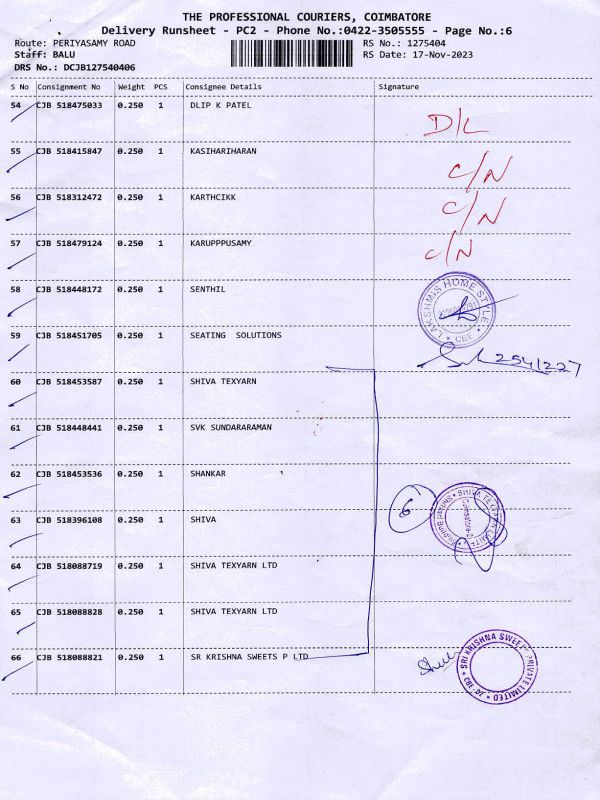 THE PROFESSIONAL COURIERS, COIMBATORE
Delivery Runsheet - PC2 - Phone No.:0422-3505555 - Page No.:6
Route: PERIYASAMY ROAD RS No.: 1275404
Staff: BALU RS Date: 17-Nov-2023
DRS No.: DCJB127540406
S No Consignment No Weight PCS Consignee Details Signature
54 CJB 518475033 0.250 1 DLIP K PATEL D/L
55 CJB 518415847 0.250 1 KASIHARIHARAN C/N
56 CJB 518312472 0.250 1 KARTHCIKK C/N
57 CJB 518479124 0.250 1 KARUPPPUSAMY C/N
58 CJB 518448172 0.250 1 SENTHIL LAKSHMIS HOME STYLE CBE
59 CJB 518451705 0.250 1 SEATING SOLUTIONS 2541227
60 CJB 518453587 0.250 1 SHIVA TEXYARN
61 CJB 518448441 0.250 1 SVK SUNDARARAMAN
62 CJB 518453536 0.250 1 SHANKAR
63 CJB 518396108 0.250 1 SHIVA 6 SHIVA TEXYARN LIMITED
64 CJB 518088719 0.250 1 SHIVA TEXYARN LTD
65 CJB 518088828 0.250 1 SHIVA TEXYARN LTD
66 CJB 518088821 0.250 1 SR KRISHNA SWEETS P LTD SRI KRISHNA SWEETS PRIVATE LIMITED